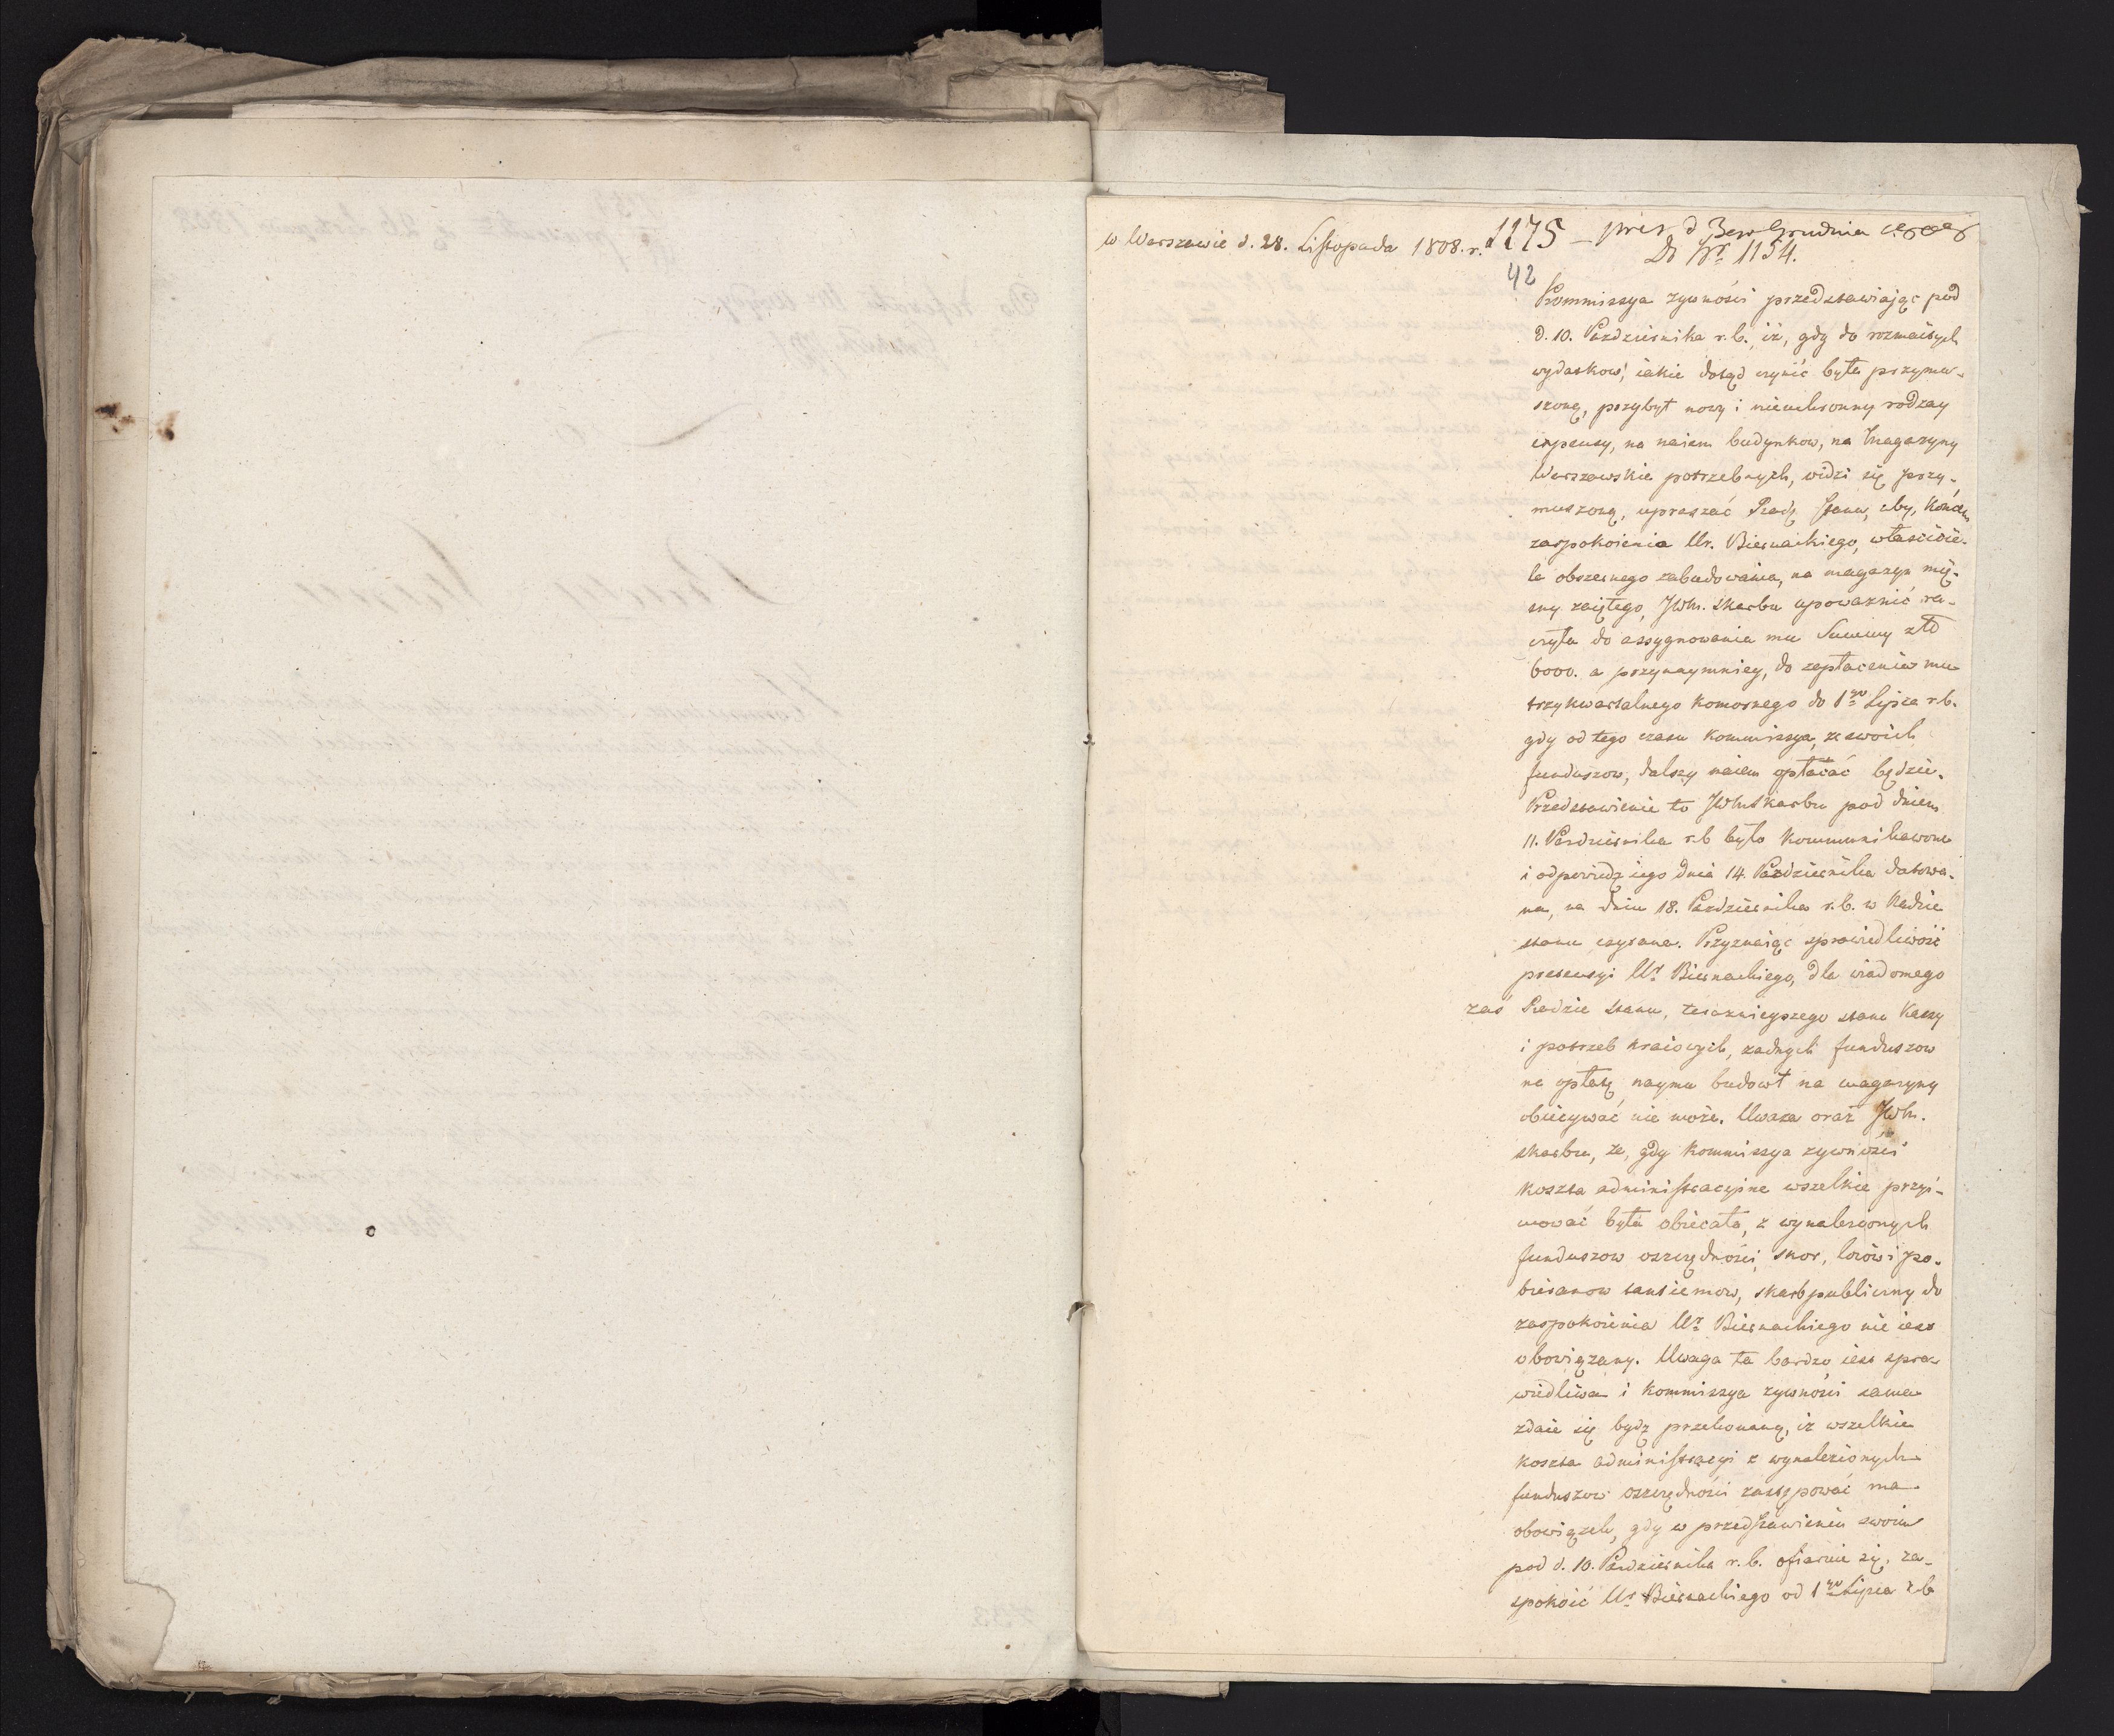 w Warszawie d. 28. Listopada 1808. r.
1175 – pres d 3go Grudnia
Do Nr 1154.
42
Kommissya zywności przedstawiaiąc pod
d. 10. Pazdziernika r. b., iż, gdy do rozmaitych
wydatkow, iakie dotąd czynić była przymu-
szoną, przybył nowy i nieuchronny rodzay
expensy, na naiem budynkow, na Magazyny
Warszawskie potrzebnych, widzi się przy-
muszoną, upraszać Radę Stanu, aby, końcem
zaspokoienia Ur. Biernackiego, właścicie-
la obszernego zabudowania, na magazyn mię-
sny zaiętego, JWM. Skarbu upoważnić ra-
czyła do assygnowania mu Summy złł
6000. a przynaymniey, do zapłacenia mu
trzykwartalnego komornego do 1go Lipca r. b.
gdy od tego czasu Kommissya, ze swoich
funduszow, dalszy naiem opłacać będzie.
Przedstawienie to JWM Skarbu pod dniem
11. Pazdziernika r. b było kommunikowane
i odpowiedz iego dnia 14. Pazdziernika datowa-
na, na dniu 18. Pazdziernika r. b. w Radzie
stanu czytana. Przyznaiąc sprawiedliwość
pretensyi Ur. Biernackiego, dla wiadomego
zaś Radzie stanu, teraznieyszego stanu Kassy
i potrzeb kraiowych, zadnych funduszow
na opłatę naymu budowł na magazyny
obiecywać nie może. Uwaza oraz JWM.
skarbu, ze, gdy Kommissya zywności
koszta administracyine wszelkie przyi-
mować była obiecała, z wynalezionych
funduszow oszczędności, skor, łoiów i po-
bieranow tantiemow, skarb publiczny do
zaspokoienia Ur. Biernackiego nie iest
obowiązany. Uwaga ta bardzo iest spra-
wiedliwa i Kommissya zywności sama
zdaie się bydz przekonaną, iz wszelkie
koszta administracyi z wynalezionych
funduszow oszczędności zastępować ma
obowiązek, gdy w przedstawieniu swoim
pod d. 10. Pazdziernika r. b. ofiaruie się, za-
spokoić Ur. Biernackiego od 1go Lipca r b